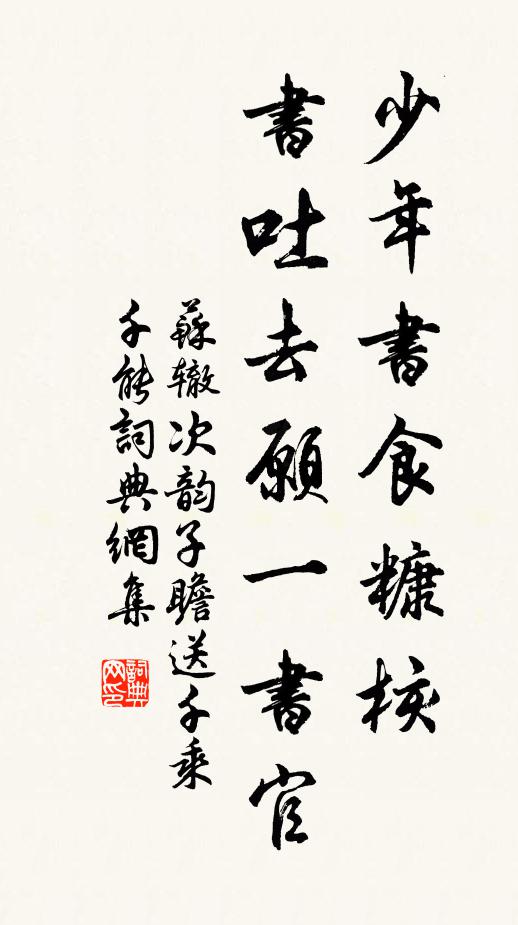 少年書食糠核
書吐去願一書官
蘇辙次韵子瞻送千乘
千能詞典網集
詞典
网印